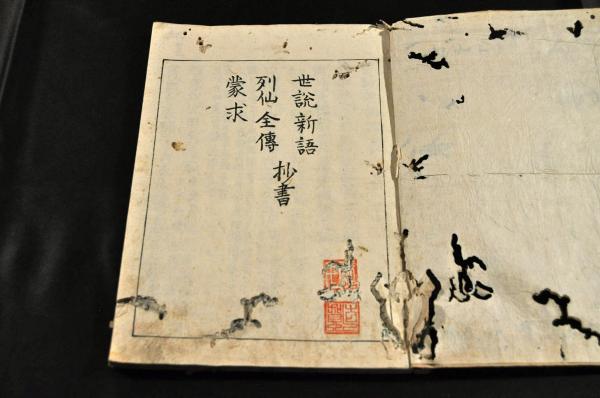 世説新語
列仙全傳
蒙求
抄書